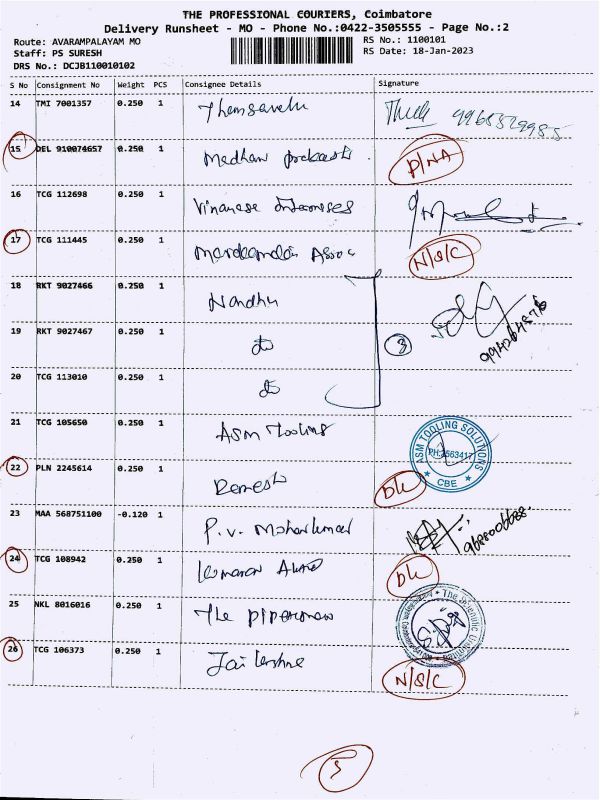 THE PROFESSIONAL COURIERS, Coimbatore
Delivery Runsheet - MO - Phone No.:0422-3505555 - Page No.:2
Route: AVARAMPALAYAM MO
RS No.: 1100101
Staff: PS SURESH
RS Date: 18-Jan-2023
DRS No.: DCJB110010102
S No Consignment No Weight PCS Consignee Details Signature
14 TMI 7001357 0.250 1
15 DEL 910074657 0.250 1 Madhan prakash P/NA
16 TCG 112698 0.250 1
17 TCG 111445 0.250 1 N/S/C
18 RKT 9027466 0.250 1 Nandhu
19 RKT 9027467 0.250 1 do 3
20 TCG 113010 0.250 1 do
21 TCG 105650 0.250 1 ASM Tooling ASM TOOLING SOLUTIONS PH:2563417 CBE
22 PLN 2245614 0.250 1 Ramesh DLK
23 MAA 568751100 -0.120 1 P.V. Mohankumar
24 TCG 108942 0.250 1 DLK
25 NKL 8016016 0.250 1 The
26 TCG 106373 0.250 1 N/S/C
5